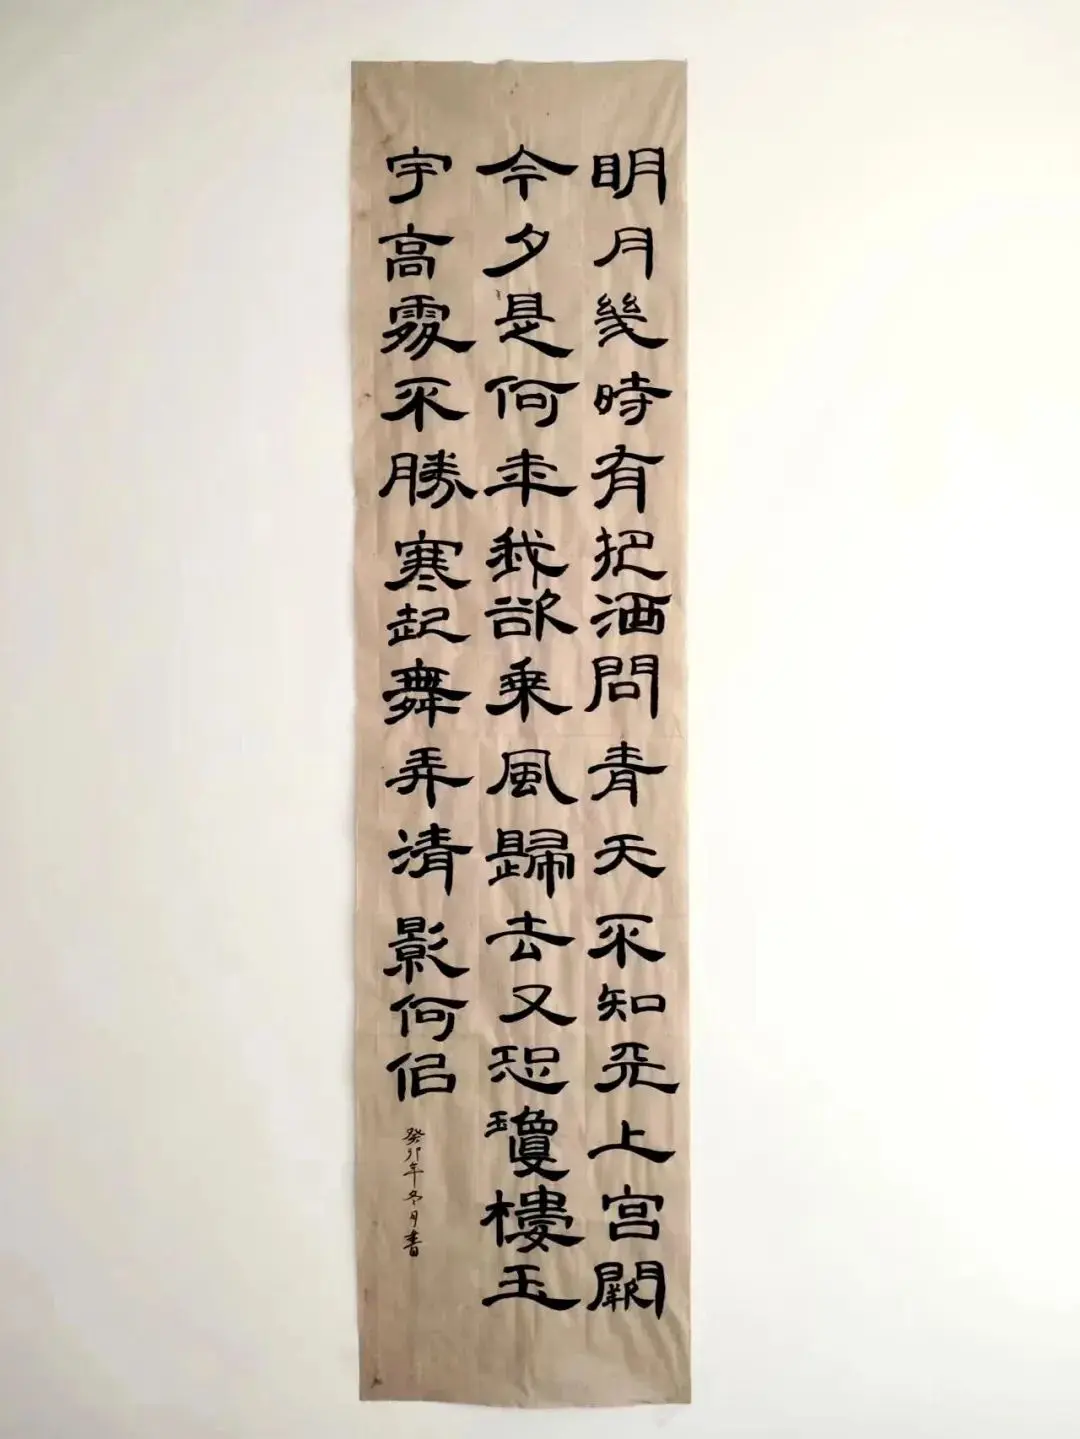 明月幾時有把酒問青天不知天上宮闕
今夕是何年我欲乘風歸去又恐瓊樓玉
宇高處不勝寒起舞弄清影何侣
癸卯年冬月書